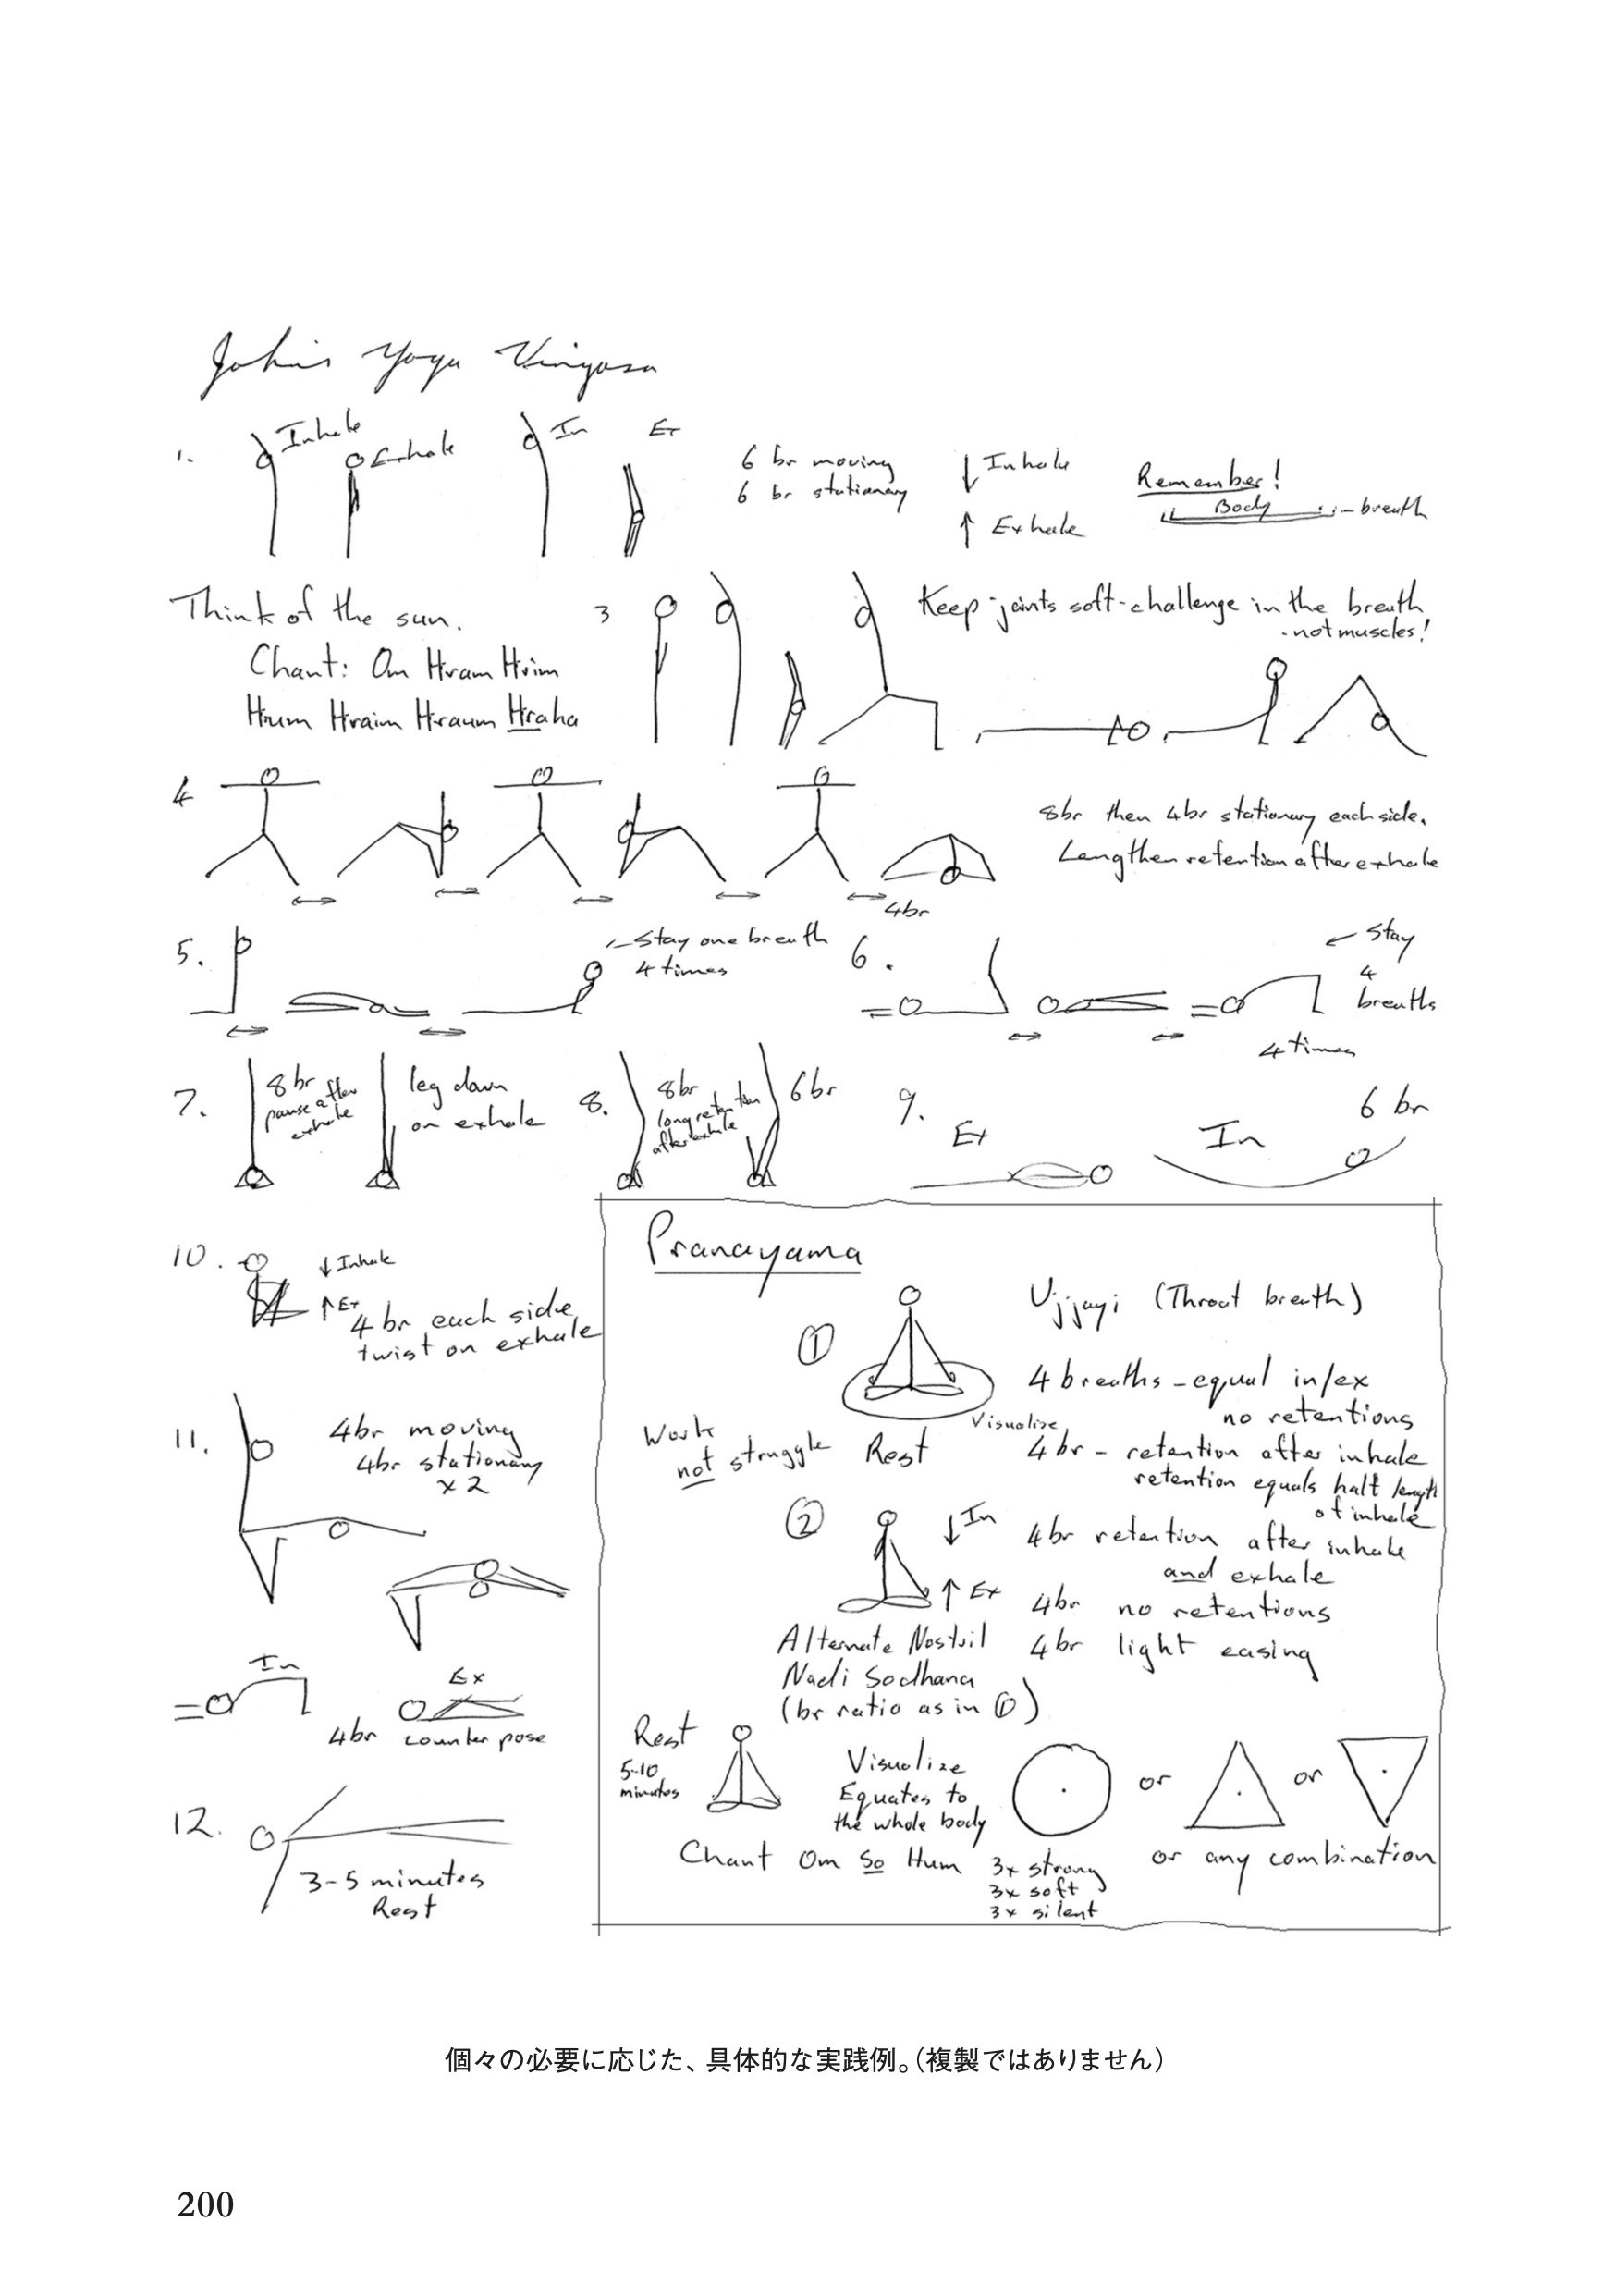 John's Yoga Vinyasa
1. Inhale Exhale In Ex
6 br moving
6 br stationary
↓ Inhale
↑ Exhale
Remember!
Body - breath
Think of the sun.
Chant: Om Hram Hrim
Hrum Hraim Hraum Hraha
3
Keep joints soft - challenge in the breath
- not muscles!
4
8br then 4br stationary each side.
Lengthen retention after exhale
4br
5.
← Stay one breath
4 times
6.
← Stay
4
breaths
4 times
7.
8br
pause after
exhale
leg down
on exhale
8.
8br
long retention
after exhale
6br
9.
Ex
In
6 br
10.
↓ Inhale
↑ Ex
4 br each side
twist on exhale
11.
4br moving
4br stationary
x 2
In
4br
Ex
counter pose
12.
3-5 minutes
Rest
Pranayama
①
Ujjayi (Throat breath)
4 breaths - equal in/ex
no retentions
Visualise
Work
not struggle
Rest
4br - retention after inhale
retention equals half length
of inhale
②
↓ In
↑ Ex
4br retention after inhale
and exhale
4br no retentions
4br light easing
Alternate Nostril
Nadi Sodhana
(br ratio as in ①)
Rest
5-10
minutes
Visualize
Equates to
the whole body
or
or
or any combination
Chant Om So Hum
3x strong
3x soft
3x silent
個々の必要に応じた、具体的な実践例。（複製ではありません）
200